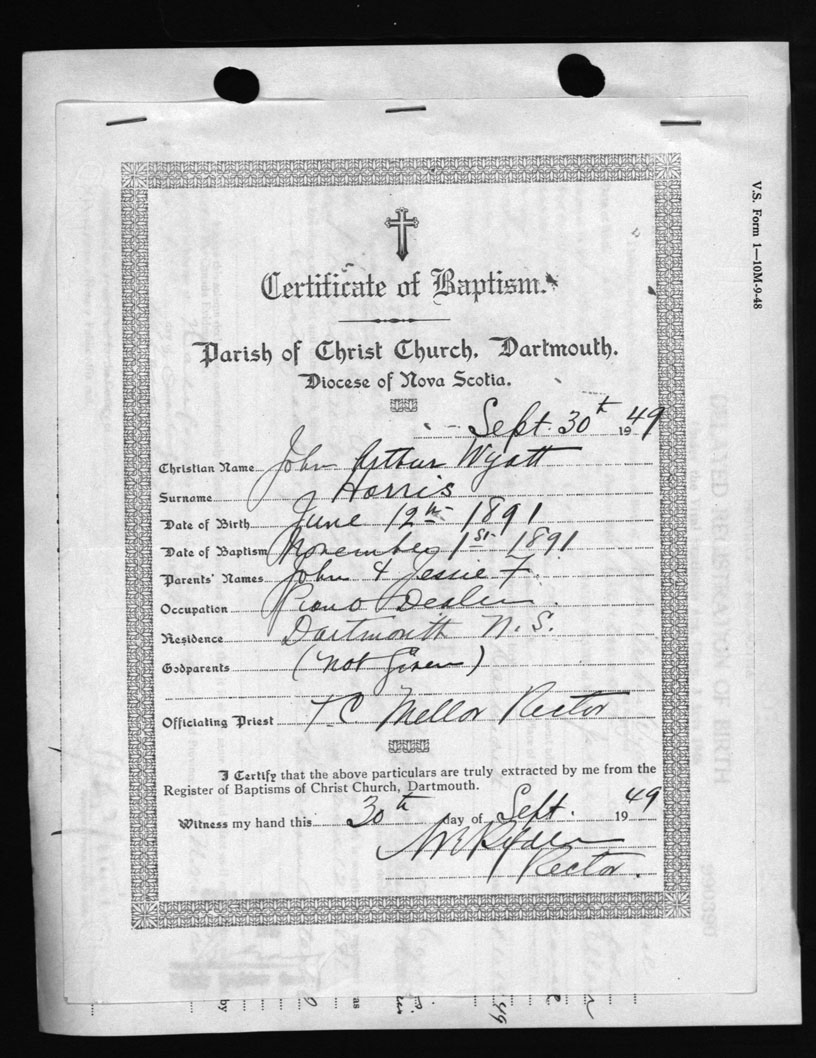 Certificate of Baptism.
Parish of Christ Church, Dartmouth.
Diocese of Nova Scotia.
Sept. 30th 1949
Christian Name John Arthur Wyatt
Surname Harris
Date of Birth June 12th 1891
Date of Baptism November 1st 1891
Parents' Names John & Jessie F.
Occupation Piano Dealer
Residence Dartmouth N.S.
Godparents (not given)
Officiating Priest T.C. Mellor Rector
I Certify that the above particulars are truly extracted by me from the
Register of Baptisms of Christ Church, Dartmouth.
Witness my hand this 30th day of Sept. 1949
Rector.
V.S. Form 1—10M-9-48
by
as